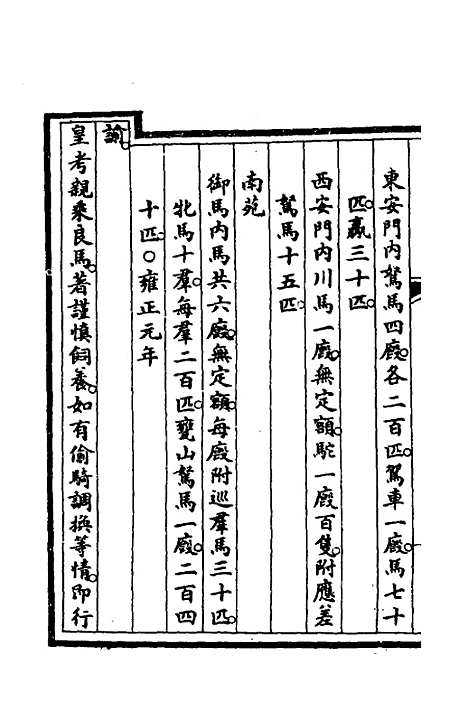 東安門內駑馬四廄。各二百匹。駕車一廄。馬七十
匹。驘三十匹。
西安門內川馬一廄。無定額。駝一廄。百隻。附應差
駑馬十五匹。
南苑
御馬內馬共六廄。無定額。每廄附巡羣馬三十匹。
牝馬十羣。每羣二百匹。甕山駑馬一廄。二百四
十匹。○雍正元年
諭。
皇考親乘良馬。著謹慎飼養。如有偷騎調換等情。即行